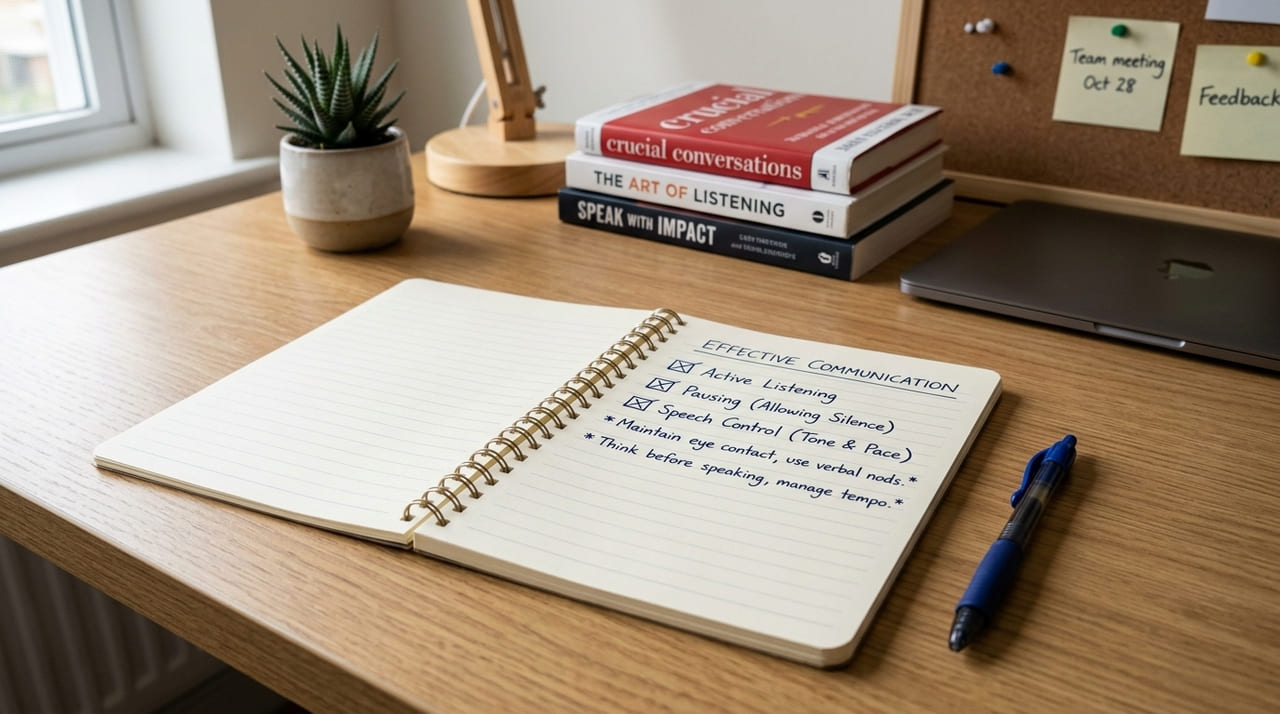 EFFECTIVE COMMUNICATION
Active Listening
Pausing (Allowing Silence)
Speech Control (Tone & Pace)
* Maintain eye contact, use verbal nods. *
* Think before speaking, manage tempo. *
crucial
conversations
crucial conversations
THE ART OF LISTENING
SPEAK WITH IMPACT
Team meeting
Oct 28
Feedback